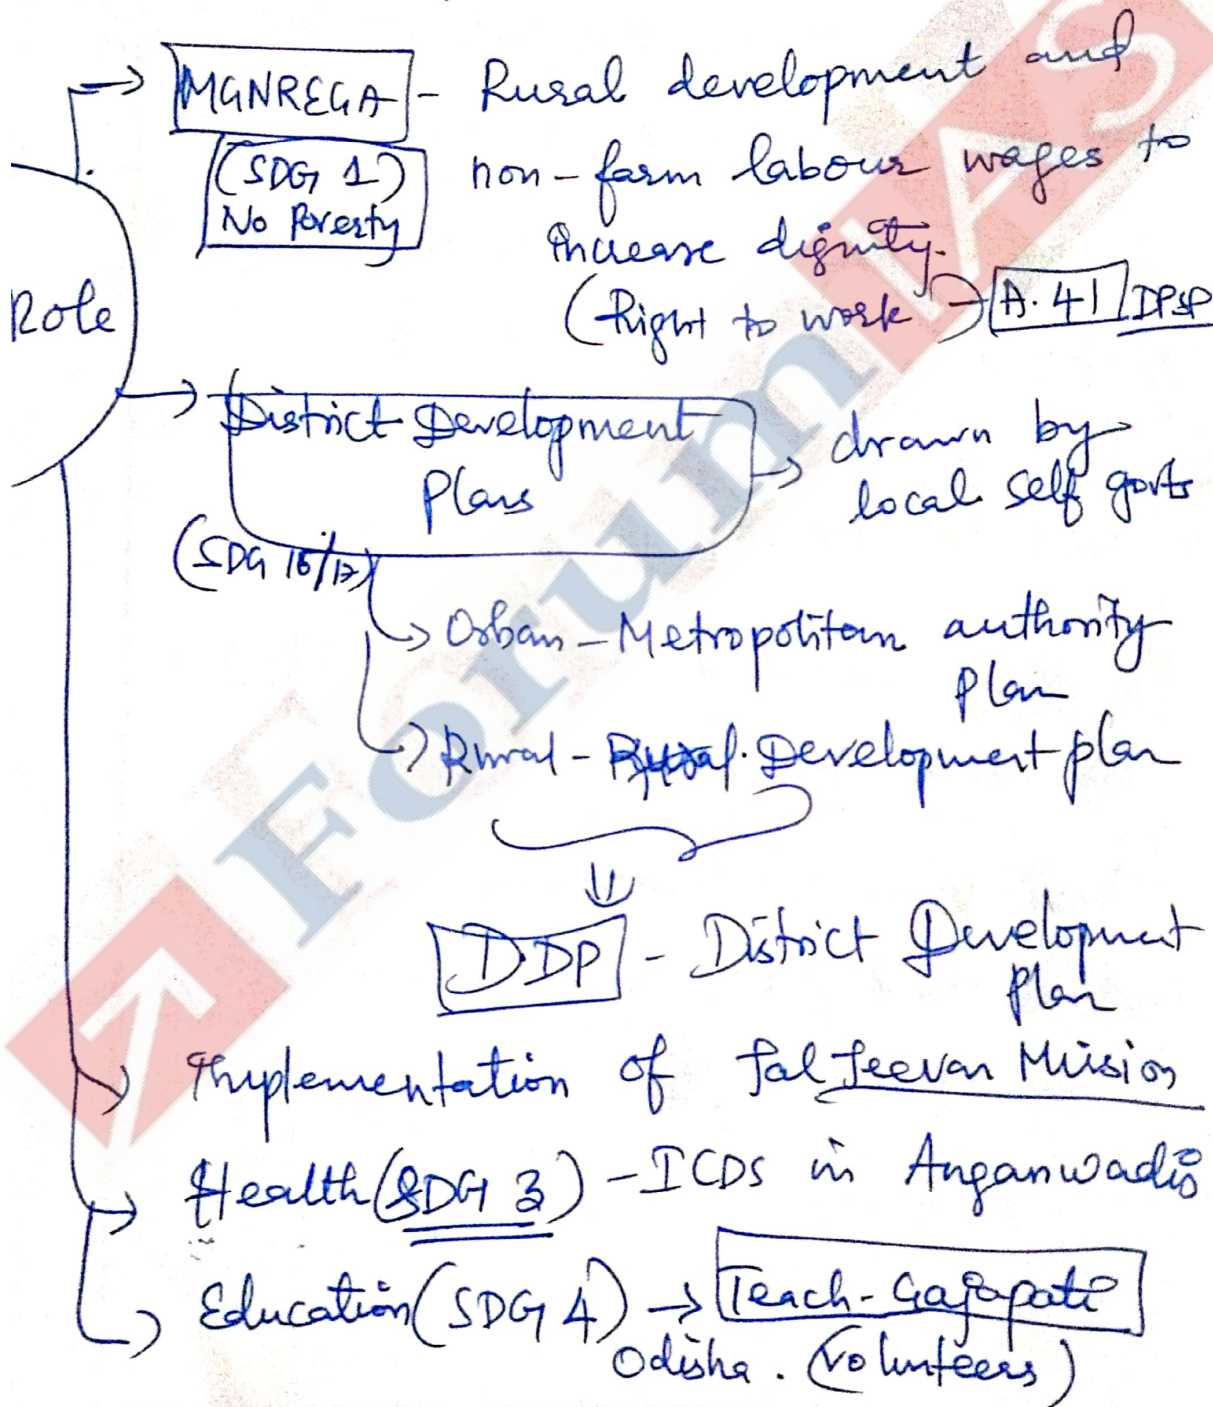 MGNREGA - Rural development and
(SDG 1) non-farm labour wages to
No Poverty increase dignity.
(Right to work → A. 41 DPSP
Role
District Development
Plans
→ drawn by
local self govts
(SDG 16/17)
→ Urban - Metropolitan authority
Plan
→ Rural - Rural Development plan
⇓
DDP - District Development
Plan
→ Implementation of Jal Jeevan Mission
→ Health (SDG 3) - ICDS in Anganwadis
→ Education (SDG 4) → Teach-Gajapati
Odisha. (volunteers)
ForumIAS